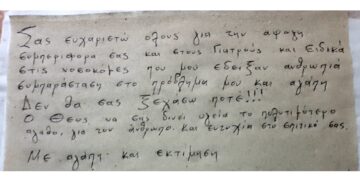 Σας ευχαριστώ όλους για την άψογη
συμπεριφορα σας και στους Γιατρούς και Ειδικά
στις νοσοκόμες που μου εδειξαν ανθρωπιά
συμπαράσταση στο πρόβλημα μου και αγάπη
Δεν θα σας ξεχάσω ποτέ!!!
Ο Θεος να σας δινει υγεία το πολυτιμότερο
αγαθο, για τον άνθρωπο. Και ευτυχία στο σπιτικό σας.
Με αγάπη και εκτίμηση